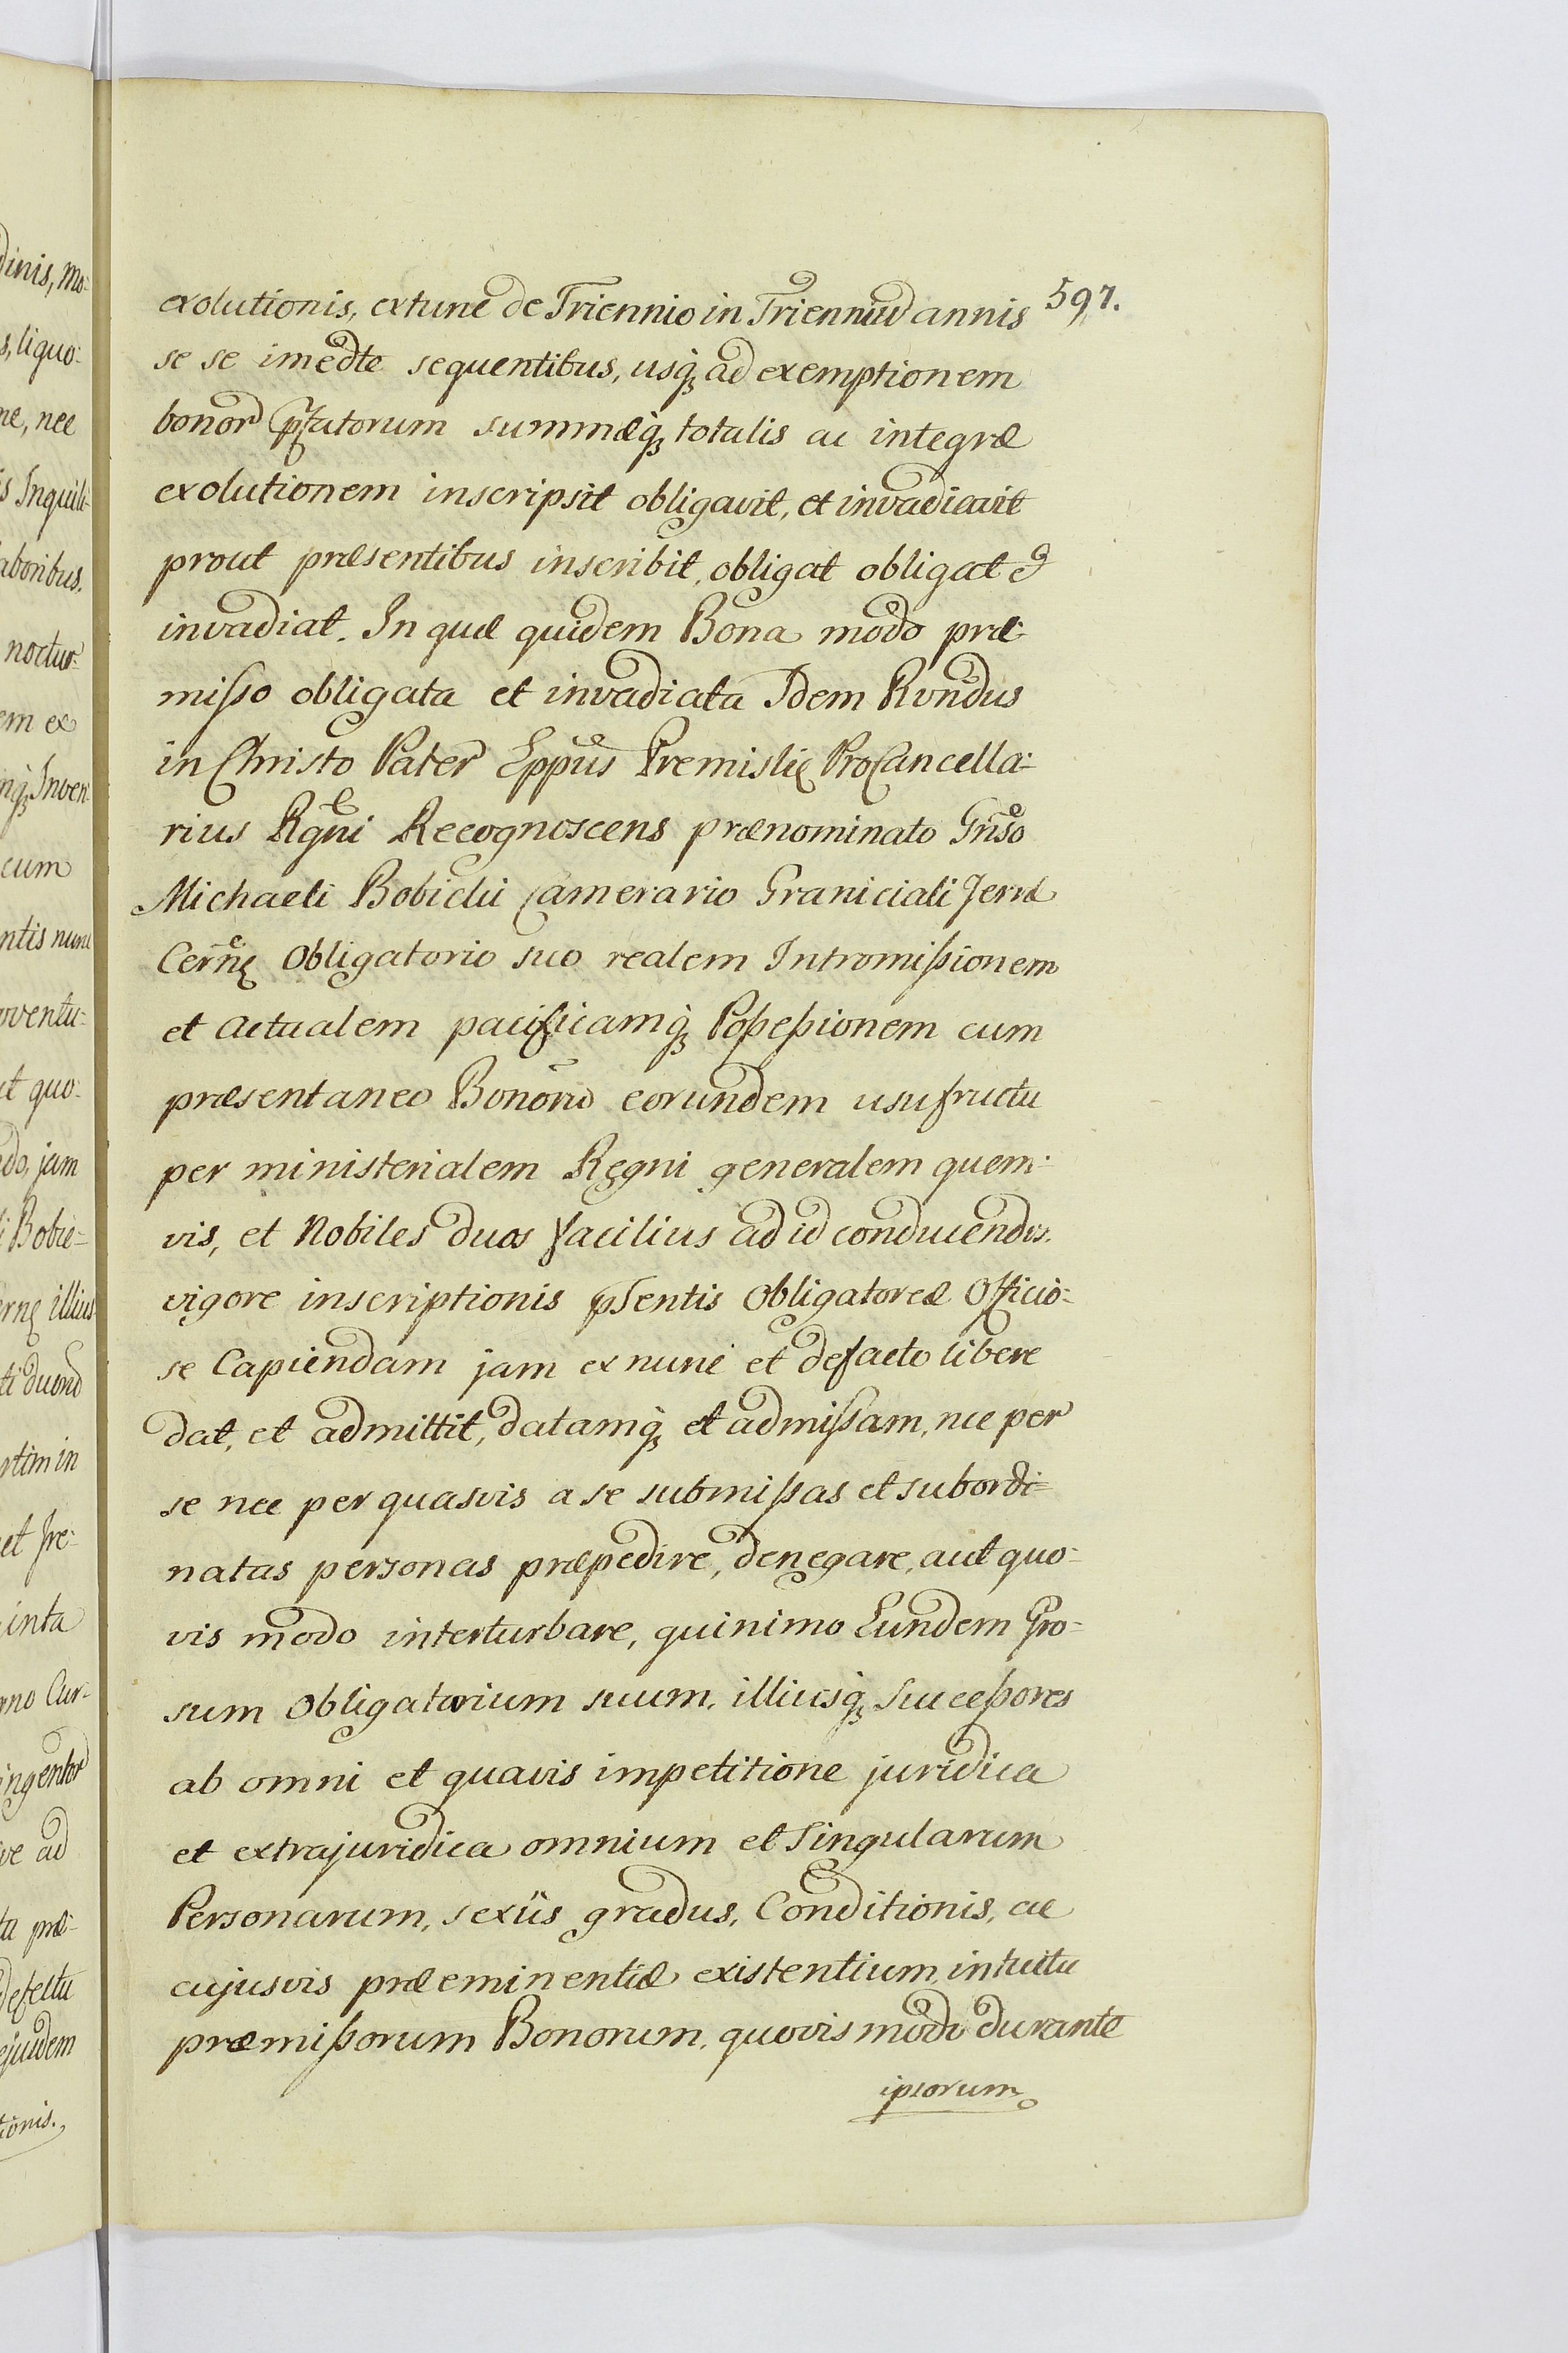 597.
exolutionis, extunc de Triennio in Trienniũ annis
se se imẽdte sequentibus, usq̃ ad exemptionem
bonor p̃tatorum summæq̃ totalis ac integræ
exolutionem inscripsit obligavit, et invadiavit
prout præsentibus inscribit, obligat obligat et
invadiat. In quæ quidem Bona modo præ-
misso obligata et invadiata Idem Rvndus
in Christo Pater Eppus Premislię ProCancella-
rius Rgni Recognoscens prænominato Gnso
Michaeli Bobicki Camerario Graniciali Terræ
Cernę Obligatorio suo realem Intromissionem
et actualem pacificamq̃ Possessionem cum
præsentaneo Bonorũ eorundem usufructu
per ministerialem Regni generalem quem-
vis, et Nobiles duos facilius ad id conducendos
vigore inscriptionis psentis Obligatoreæ Officio-
se Capiendam jam ex nunc et defacto libere
dat, et admittit, datamq̃ et admissam, nec per
se nec per quasvis a se submissas et subordi-
natas personas præpedire, denegare, aut quo-
vis modo interturbare, quinimo Eundem Gro-
sum Obligatorium suum, illiusq̃ Successores
ab omni et quavis impetitione juridica
et extrajuridica omnium et Singularum
Personarum, sexûs gradus, Conditionis, ac
cujusvis præeminentiæ existentium, intuitu
præmissorum Bonorum, quovis modo durante
ipsorum